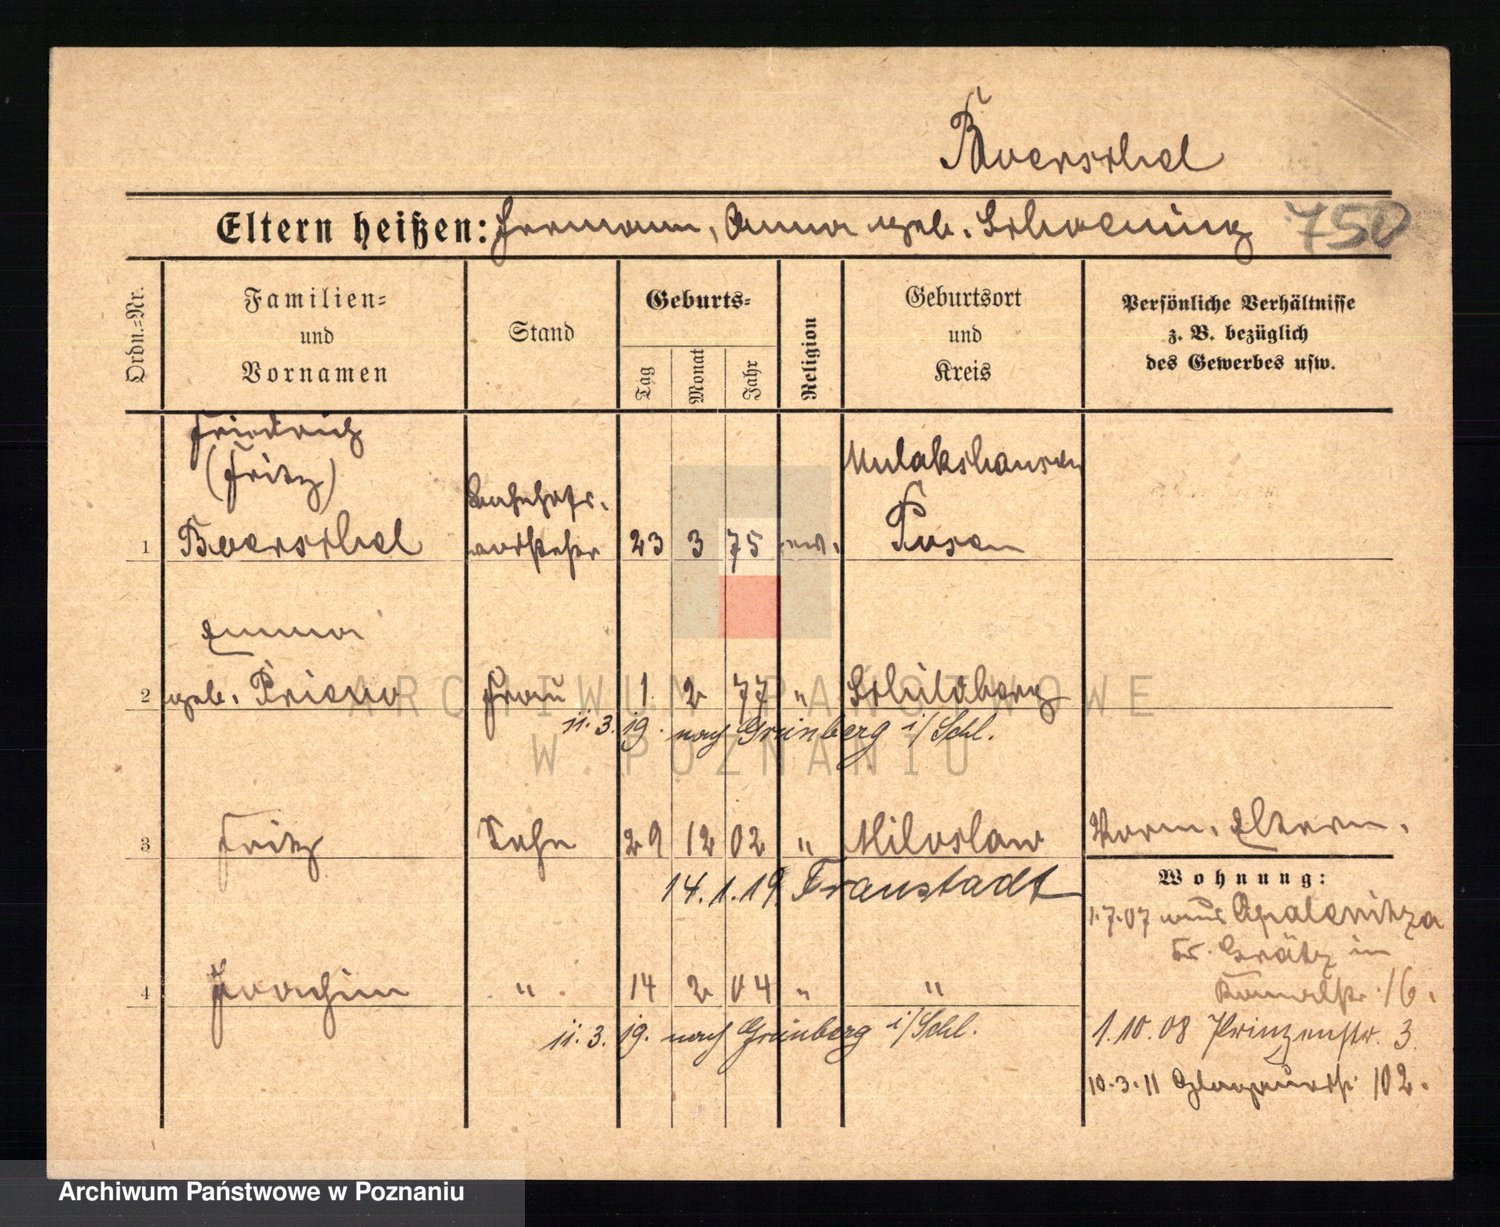 Boerschel
Eltern heißen: Hermann, Anna geb. Schoening 750
Ordn.-Nr.
Familien-
und
Vornamen
Stand
Geburts-
Tag
Monat
Jahr
Religion
Geburtsort
und
Kreis
Persönliche Verhältnisse
z. B. bezüglich
des Gewerbes usw.
Friedrich
(Fritz)
Mulakshausen
Bahnhofs-
1 Boerschel vorsteher 23 3 75 ev. Posen
Emma
2 geb. Frau 1. 2 77 " Schildberg
11. 3. 19. nach Grünberg i/Schl.
3 Fritz Sohn 29 12 02 " Miloslaw Vorm. Eltern.
14. 1. 19 Fraustadt
Wohnung:
1.7.07 aus Opalenitza
Kr. Grätz in
16.
4 Joachim " 14 2 04 " "
11. 3. 19. nach Grünberg i/Schl.
1.10.08 Prinzenstr. 3
10.3.11 Glogauerstr. 102.
ARCHIWUM PAŃSTWOWE
W POZNANIU
Archiwum Państwowe w Poznaniu